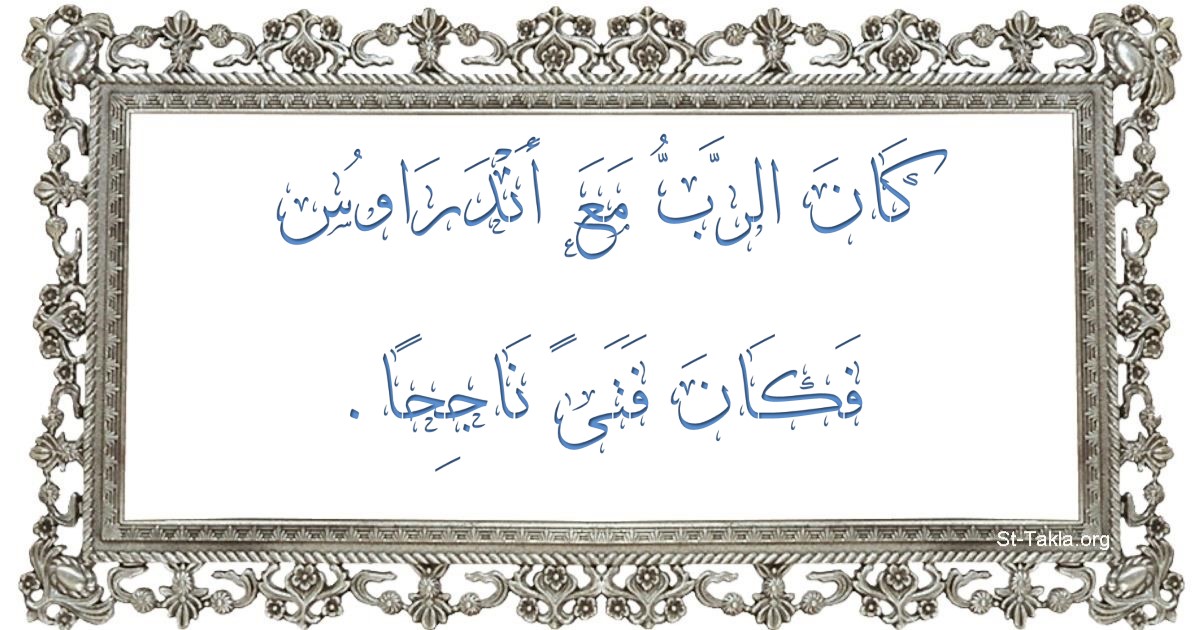 كَانَ الرَّبُّ مَعَ أَنْدَرَاوُس
فَكَانَ فَتَىً نَاجِحًا .
St-Takla.org